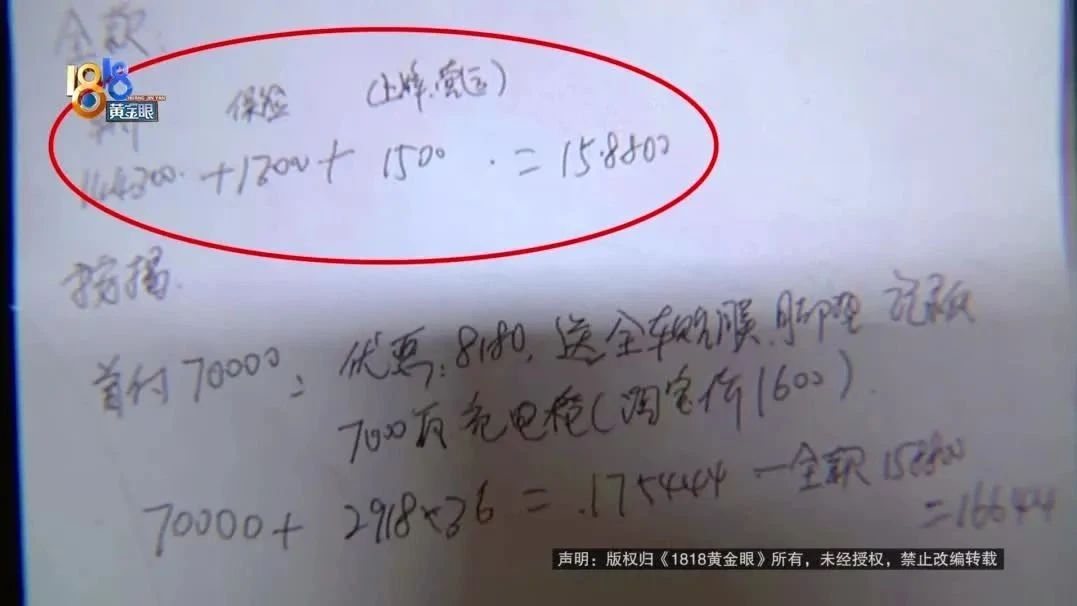 全款:
1818
HUANG JIN YAN
黄金眼
保险 (上牌.营运)
+ 1500 = 158800
按揭.
首付70000 = 优惠:8180, 送全车贴膜.脚垫
7000瓦充电枪(淘宝价1600).
70000 + 2918×36 = 175444 - 全款158800
= 16644
声明：版权归《1818黄金眼》所有，未经授权，禁止改编转载